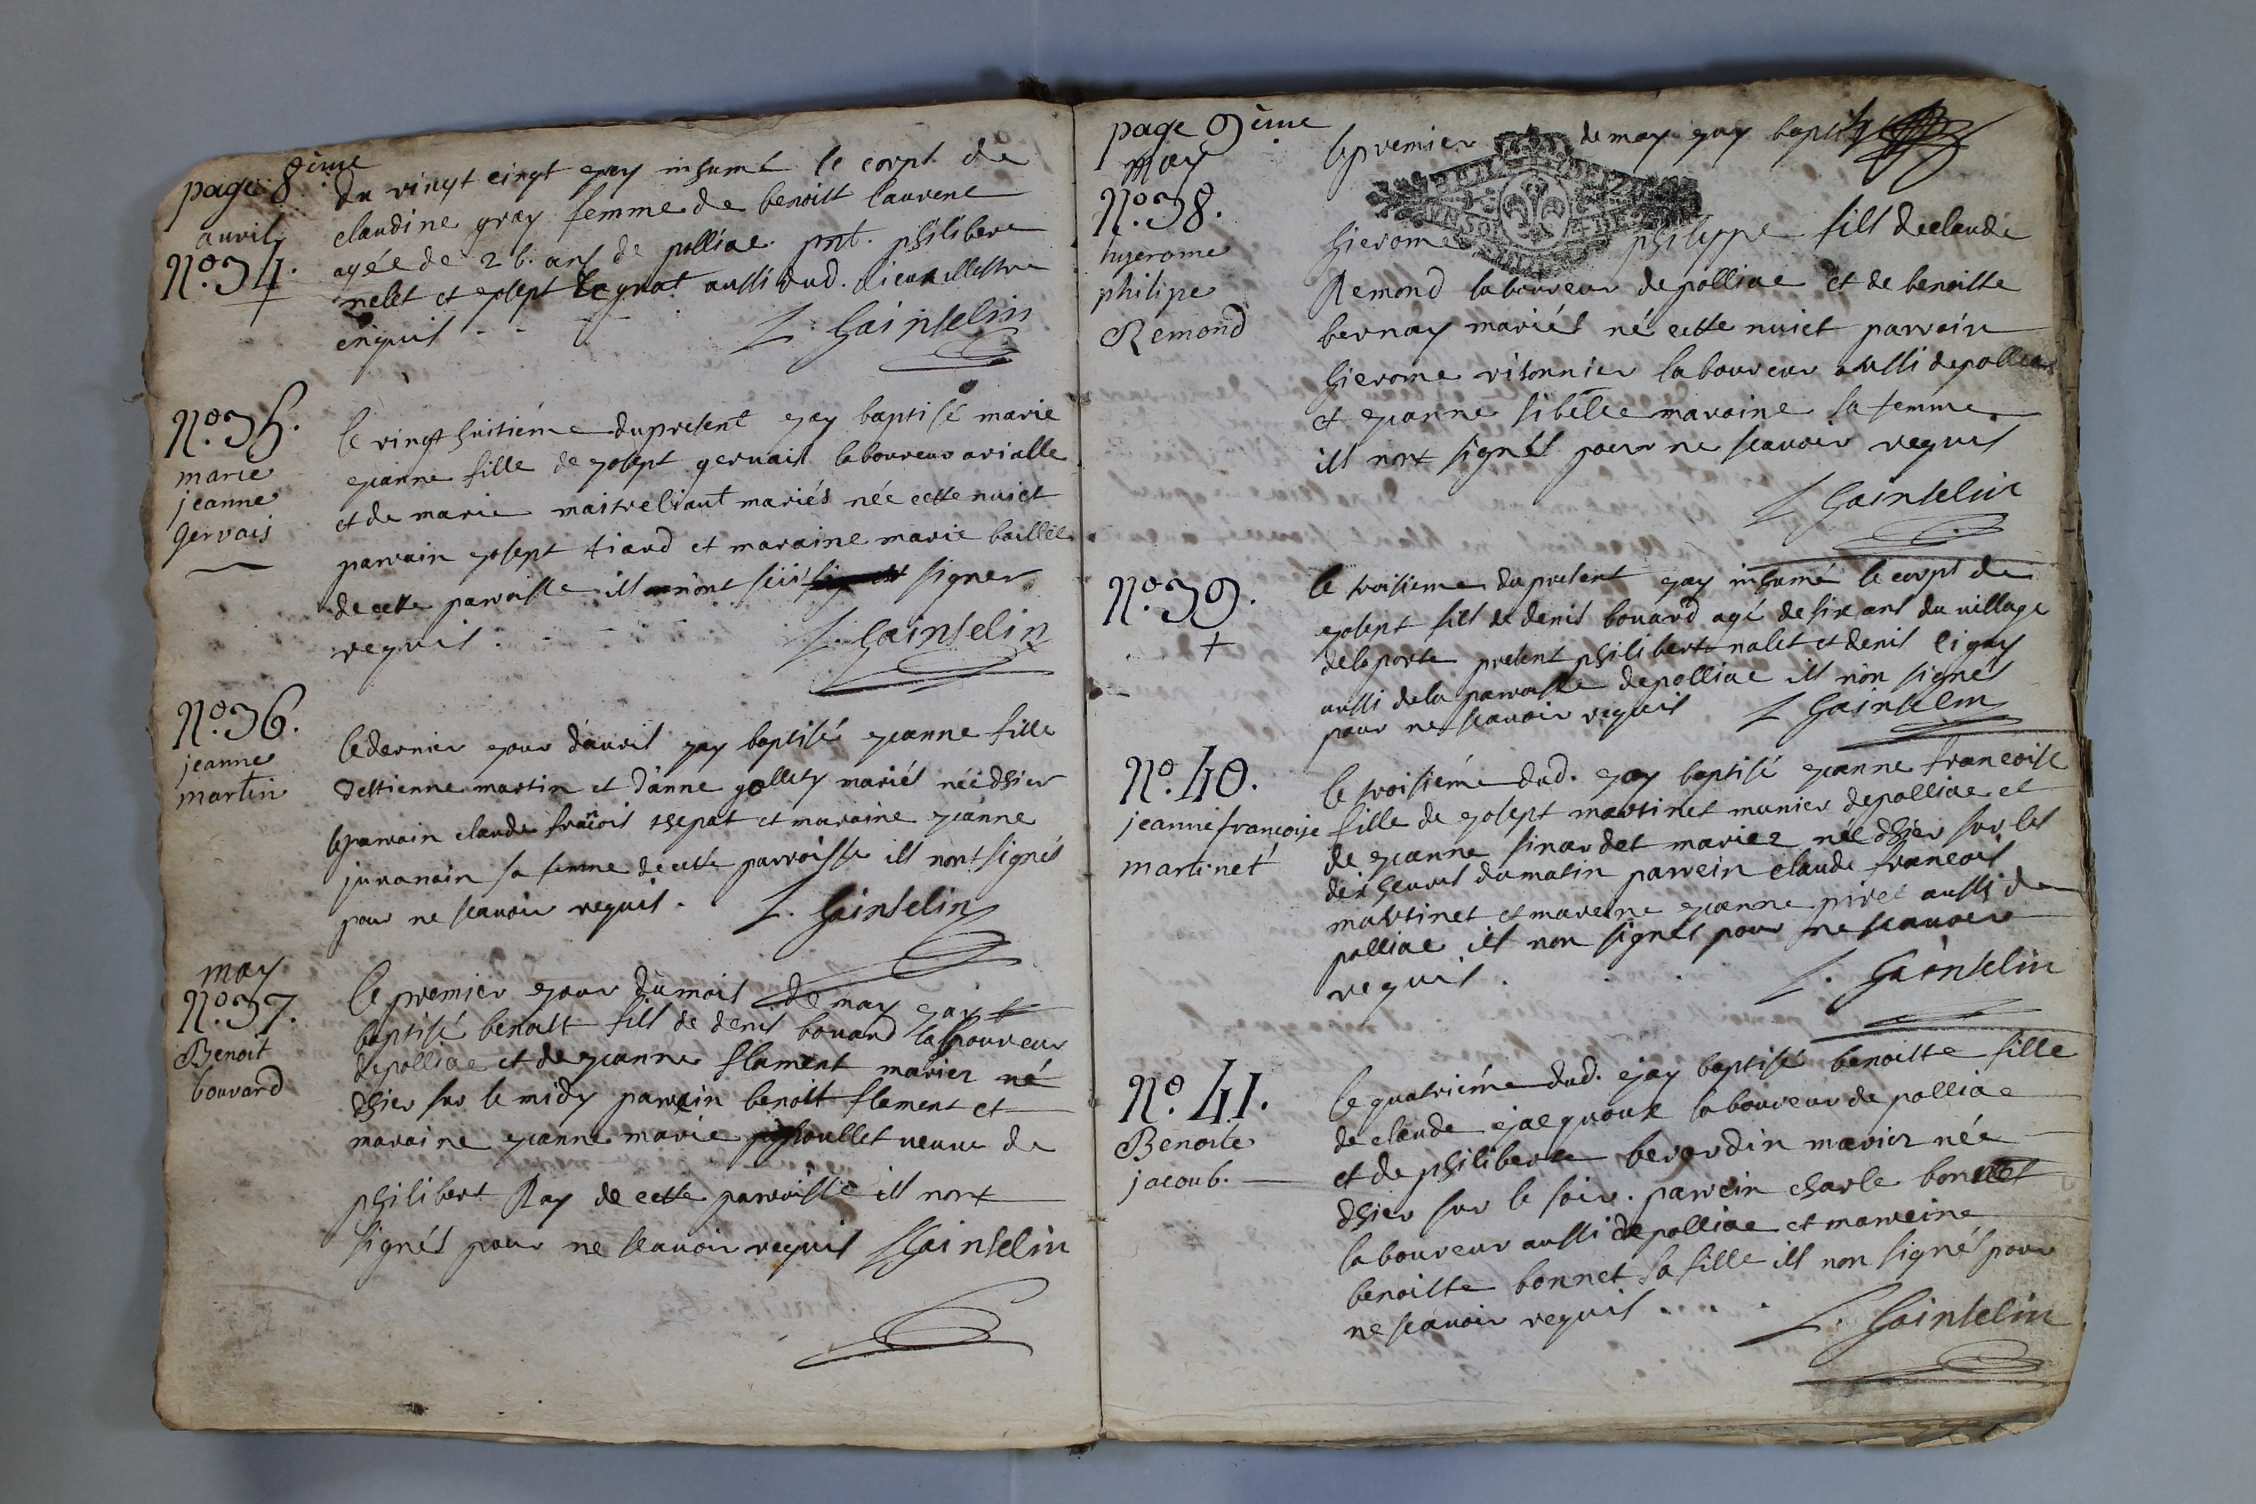 page 8ème
avril
N°.34.
du vingt cinqt ejay inhumé le corps de
claudine gray femme de benoist laurent
agée de 26. ans de polliac. pnt. philibert
nalet et ejosept aussi dud. lieu
enquis
L. Gainselin
N°.35.
marie
jeanne
gervais
le vingt huitiéme du present ejay baptisé marie
ejeanne fille de ejosept gervais laboureur
et de marie mariés née cette nuict
parrain ejosept tiard et maraine marie
de cette parroisse ils n'ont signer
requis.
L. Gainselin
N°.36.
jeanne
martin
le dernier ejour d'avril ejay baptisé ejeanne fille
d'estienne martin et d'anne mariés née dhier
le parrain claude francois et maraine ejeanne
juvanain sa femme de cette parroisse ils n'ont signés
pour ne scavoir requis.
L. Gainselin
may
N°.37.
Benoit
bouvard
le premier ejour du mois de may ejay
baptisé benoist fils de denis bouard laboureur
de polliac et de ejeanne flament mariez né
dhier sur le midy parrein benoist flament et
maraine ejeanne marie veuve de
philibert Ray de cette parroisse ils n'ont
signés pour ne scavoir requis L Gainselin
page 9ème
may
N°.38.
hyerome
philipe
Remond
le premier de may ejay baptisé
hierome philippe fils de claude
Remond laboureur de polliac et de benoitte
bernay mariés né cette nuict parrain
hierome visonnier laboureur aussi de polliac
et ejeanne sibelle maraine sa femme
ils n'ont signés pour ne scavoir requis
L Gainselin
N°.39.
+
le troisieme du present ejay inhumé le corps de
ejosept fils de denis bouard agé de six ans du village
de la porte present philibert nalet et denis
aussi de la parroisse de polliac ils n'on signés
pour ne scavoir requis
L Gainselin
N°.40.
jeanne françoise
martinet
le troisiéme dud. ejay baptisé ejeanne francoise
fille de ejosept martinet munier de polliac et
de ejeanne sinardet mariez née dhier sur les
dix heures du matin parrein claude francois
martinet et mareine ejeanne piret aussi de
polliac ils non signés pour ne scavoir
requis.
L. Gainselin
N°.41.
Benoite
jacoub.
le quatriéme dud. ejay baptisé benoitte fille
de claude ejacquoux laboureur de polliac
et de philiberte berardin mariez née
dhier sur le soir. parrein charle bonnet
laboureur aussi de polliac et marreine
benoitte bonnet sa fille ils non signés pour
ne scavoir requis....
L. Gainselin